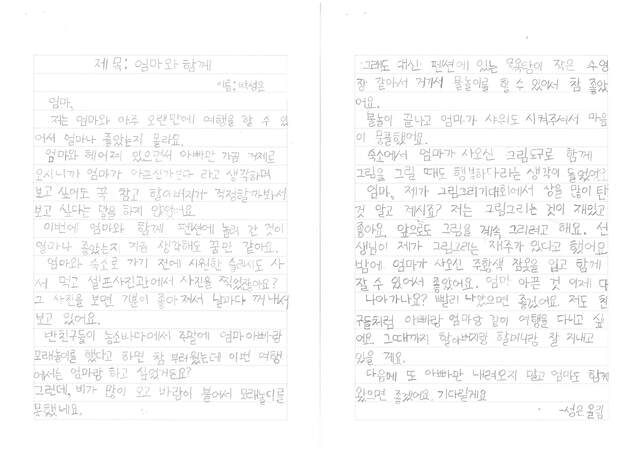 제목: 엄마와 함께
이름: 박성은
엄마,
저는 엄마와 아주 오랜만에 여행을 할 수 있
어서 얼마나 좋았는지 몰라요.
엄마와 헤어져 있으면서 아빠만 가끔 거제로
오시니까 엄마가 아프신가보다 라고 생각하며
보고 싶어도 꾹 참고 할아버지가 걱정할까봐서
보고 싶다는 말을 하지 않았어요.
이번에 엄마와 함께 펜션에 놀러 간 것이
얼마나 좋았는지 지금 생각해도 꿈만 같아요.
엄마와 숙소로 가기 전에 시원한 슬러시도 사
서 먹고 셀프사진관에서 사진을 찍었잖아요?
그 사진을 보면 기분이 좋아져서 날마다 꺼내서
보고 있어요.
반친구들이 농소바다에서 주말에 엄마아빠랑
모래놀이를 했다고 하면 참 부러웠는데 이번 여행
에서는 엄마랑 하고 싶었거든요?
그런데, 비가 많이 오고 바람이 불어서 모래놀이를
못했네요.
그래도 대신 펜션에 있는 목욕탕이 작은 수영
장 같아서 거기서 물놀이를 할 수 있어서 참 좋았
어요.
물놀이 끝나고 엄마가 샤워도 시켜주셔서 마음
이 뭉클했어요.
숙소에서 엄마가 사오신 그림도구로 함께
그림을 그릴 때도 행복하다라는 생각이 들었어요?
엄마, 제가 그림그리기대회에서 상을 많이 탄
것 알고 계시죠? 저는 그림그리는 것이 재밌고
좋아요. 앞으로도 그림을 계속 그리려고 해요. 선
생님이 제가 그림그리는 재주가 있다고 했어요.
밤에 엄마가 사오신 주황색 잠옷을 입고 함께
잘 수 있어서 좋았어요. 엄마 아픈 것 이제 다
나아가나요? 빨리 나았으면 좋겠어요. 저도 친
구들처럼 아빠랑 엄마랑 같이 여행을 다니고 싶
어요. 그때까지 할아버지랑 할머니랑 잘 지내고
있을 게요.
다음에 또 아빠만 내려오지 말고 엄마도 함께
왔으면 좋겠어요. 기다릴게요
-성은 올림